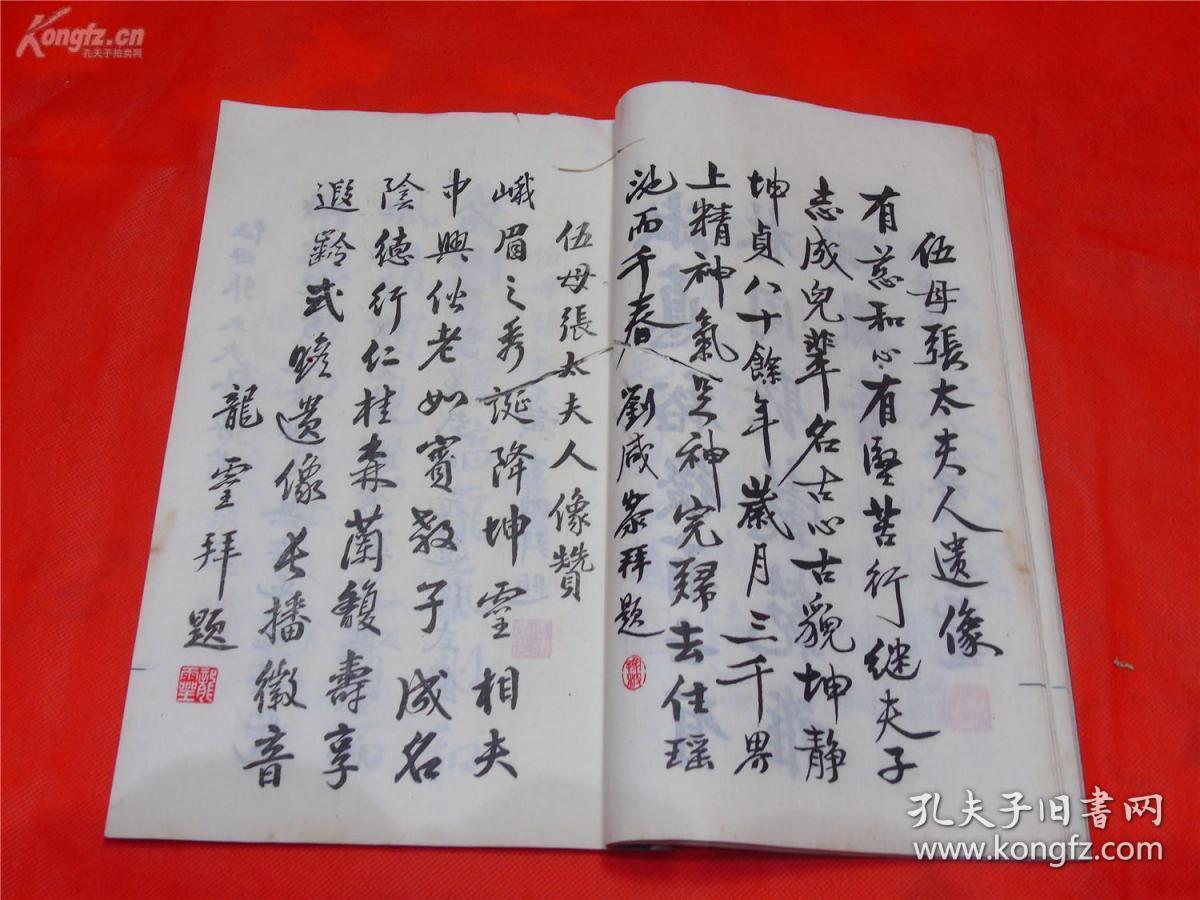 伍母張太夫人遺像
有慈和心有堅苦行继夫子
志成兒輩名古心古貌坤静
坤貞八十餘年歲月三千界
上精神氣足神完歸去住瑶
池而千春 劉咸滎拜題
伍母張太夫人像贊
峨眉之秀誕降坤靈相夫
中興偕老如賓教子成名
陰德行仁桂森蘭馥壽享
遐齡式瞻遗像長播徽音
龍靈拜題
龍靈
Kongfz.cn
孔夫子拍卖网
孔夫子旧书网
www.kongfz.com